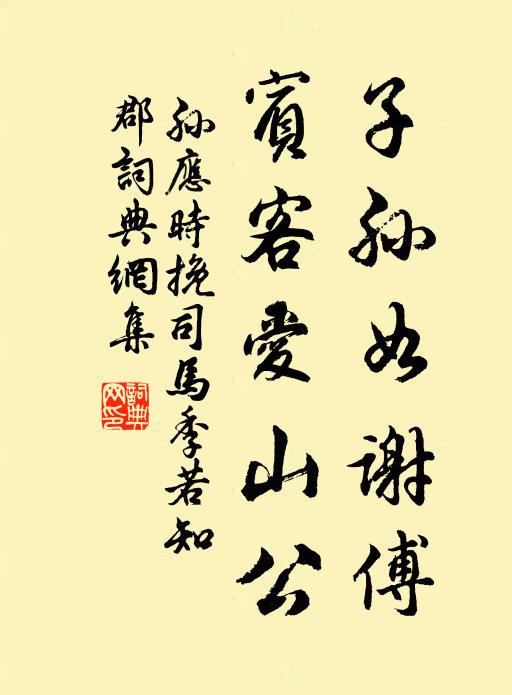 子孫如謝傅
賓客愛山公
孫應時挽司馬季若知
郡詞典網集
詞典
网印